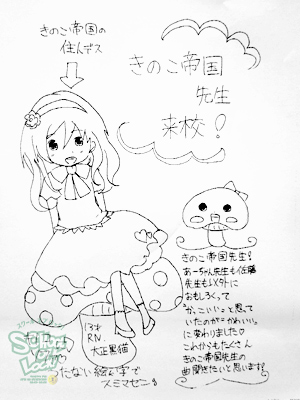 きのこ帝国の
住んデス
きのこ帝国
先生
来校!
きのこ帝国先生!
あーちゃん先生も佐藤
先生も以外に
おもしろくって
"かっこいい"と思って
いたのが"かわいい"
に変わりました♡
これからもたくさん
きのこ帝国先生の
曲聞きたいと思います!
13才
R.N.
大正黒猫
つたない絵と字で
スミマセン